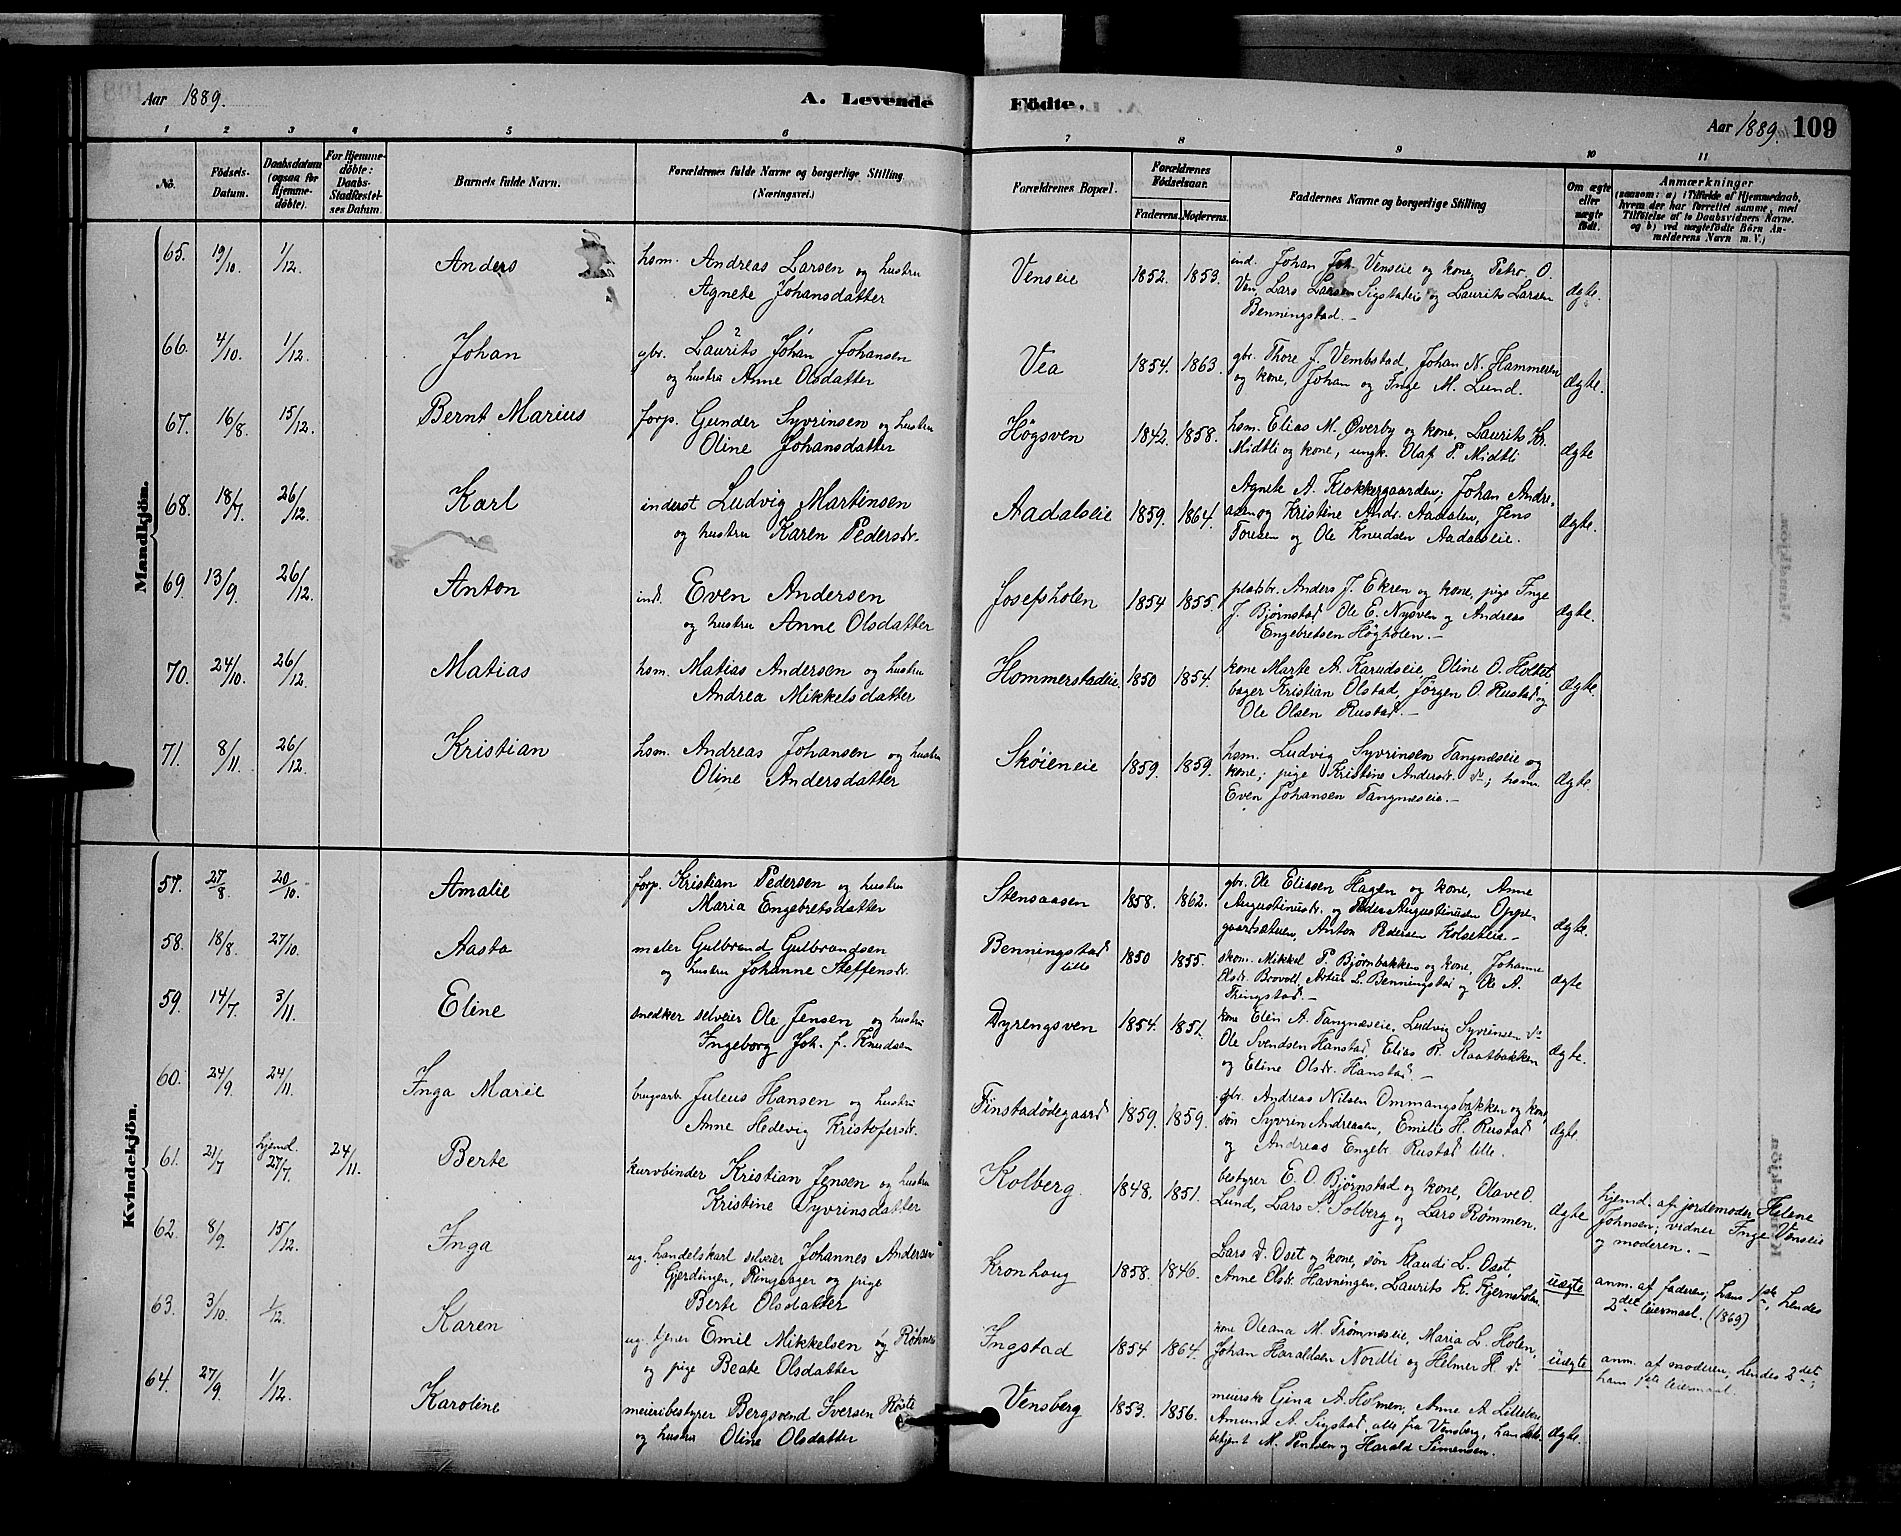 Aar 1889.
A. Levende
Födte.
Aar 1889. 109
1 2 3 4 5 6 7 8 9 10 11
No.
Födsels-
Datum.
Daabsdatum
(ogsaa for
Hjemme-
døbte).
For Hjemme-
døbte:
Daabs-
Stadfæstel-
ses Datum.
Barnets fulde Navn.
Forældrenes fulde Navne og borgerlige Stilling
(Næringsvei.)
Forældrenes Bopæl.
Forældrenes
Fødselsaar.
Faderens. Moderens.
Faddernes Navne og borgerlige Stilling
Om ægte
eller
uægte
født.
Anmærkninger
(saasom: a) i Tilfælde af Hjemmedaab,
hvem der har forrettet samme, med
Tilføielse af to Daabsvidners Navne.
og b) ved uægtefødte Börn An-
melderens Navn m. V.)
Mandkjön.
65. 19/10. 1/12. Anders
hsm. Andreas Larsen og hustru
Agnete Johansdatter
Venseie 1852. 1853.
ind. Johan Joh. Venseie og kone, Petro. O.
Ven, Lars Larsen Sigstadeie og Laurits Larsen
Benningstad.—
Ægte.
66. 4/10. 1/12. Johan
gbr. Laurits Johan Johansen
og hustru Anne Olsdatter
Vea 1854. 1863.
gbr. Thore J. Vembstad, Johan N. Hammeren
og kone, Johan og Inge M. Lund.
Ægte.
67. 16/8. 15/12. Bernt Marius
forp. Gunder Syvrinsen og hustru
Oline Johansdatter
Högsven 1842. 1858.
hsm. Elias M. Øverby og kone, Laurits Kr.
Midtli og kone, ungk. Olaf P. Midtli
Ægte
68. 18/7. 26/12. Karl
inderst Ludvig Martinsen
og hustru Karen Pedersdr.
Aadalseie 1859. 1864.
Agnete A. Klokkergaarden; Johan Andre-
asen og Kristine Andr. Aadalen, Jens
Toresen og Ole Knudsen Aadalseie.
Ægte.
69. 13/9. 26/12. Anton
ind. Even Andersen
og hustru Anne Olsdatter
Josefsholen 1854 1855.
pladsbr. Anders J. Ekren og kone, pige Inge
J. Bjørnstad, Ole E. Nysven og Andreas
Engebretsen Høgholen.—
Ægte.
70. 24/10. 26/12. Matias
hsm. Matias Andersen og hustru
Andrea Mikkelsdatter
Hommerstadeie. 1850 1854.
kone Marte A. Karudseie, Oline O. Holtet
bager Kristian Olstad, Jørgen O. Rustad og
Ole Olsen Rustad.—
Ægte.
71. 8/11. 26/12. Kristian
hsm. Andreas Johansen og hustru
Oline Andersdatter
Skøieneie 1859. 1859.
hsm. Ludvig Syvrinsen Tangnæseie og
kone; pige Kristine Andersdr. do; hsm.
Even Johansen Tangnæseie.—
Ægte.
Kvindekjön.
57. 27/8. 20/10. Amalie
forp. Kristian Pedersen og hustru
Maria Engebretsdatter
Stensaasen 1858. 1862.
gbr. Ole Eliasen Hagen og kone, Anne
Augustinusdr. og Peder Augustinusen Oppe-
gaardsætuen, Anton Pedersen Holseteie.—
Ægte.
58. 18/8. 27/10. Aasta
maler Gulbrand Gulbrandsen
og hustru Johanne Steffensdr.
Benningstad
lille 1850 1855.
skom. Mikkel P. Bjørnbakken og kone, Johanne
Olsdr. Brovold, Artur L. Benningstad og Ole A.
Thingstad.—
Ægte
59. 14/7. 3/11. Eline
snedker selveier Ole Jensen og hustru
Ingeborg Joh. f. Knudsen
Dyrengsven 1854. 1851.
kone Elin A. Tangnæseie, Ludvig Syvrinsen do
Ole Svendsen Hanstad, Elias R. Kaatbakken
og Eline Olsdr. Hanstad.—
Ægte.
60. 24/9. 24/11. Inga Marie
brugsarb. Juleus Hansen og hustru
Anne Hedevig Kristofersdr.
Finstadødegaard 1859. 1859.
gbr. Andreas Nilsen Ommangsbakken og kone,
søn Syvren Andreasen, Emilie H. Rustad
og Andreas Engebr. Rustad lille.
Ægte.
61. 21/7 hjemd. 27/7. 24/11. Berte
kurvbinder Kristian Jensen og hustru
Kristine Syvrinsdatter
Kolberg. 1848. 1851.
bestyrer E. O. Bjørnstad og kone, Olave O.
Lund, Lars S. Solberg og Lars Rømmen.
Ægte
hjemd. af jordemoder Helene
Johnsen; vidner Inge Venseie
og moderen.—
62. 8/9. 15/12. Inga
ug. handelskarl selveier Johannes Andersen
Gjerdingen, Ringsager og pige
Berte Olsdatter
Kronhaug 1858. 1846.
Lars D. Oset og kone, søn Klaudi L. Oset,
Anne Olsdr. Havningen, Laurits K. Kjernsholm.
uægte
anm. af faderen; hans 1ste, hendes
2det leiermaal. (1869)
63. 3/10. 1/12. Karen
ug. tjener Emil Mikkelsen Røhne
og pige Beate Olsdatter
Ingstad 1854 1864.
kone Oleana M. Trømnæseie, Maria L. Holen,
Johan Haraldsen Nordli og Helmer H. do
uægte
anm. af moderen, hendes 2det;
hans 1ste leiermaal.
64. 27/9. 1/12. Karoline
meieribestyrer Bergsvend Iversen Røste
og hustru Oline Olsdatter
Vensberg 1853. 1856.
meierske Gina A. Holmen, Anne A. Lilleberg
Amund A. Sigstad, alle fra Vensberg, handels-
betjent M. Pentsen og Harald Simensen.
Ægte.